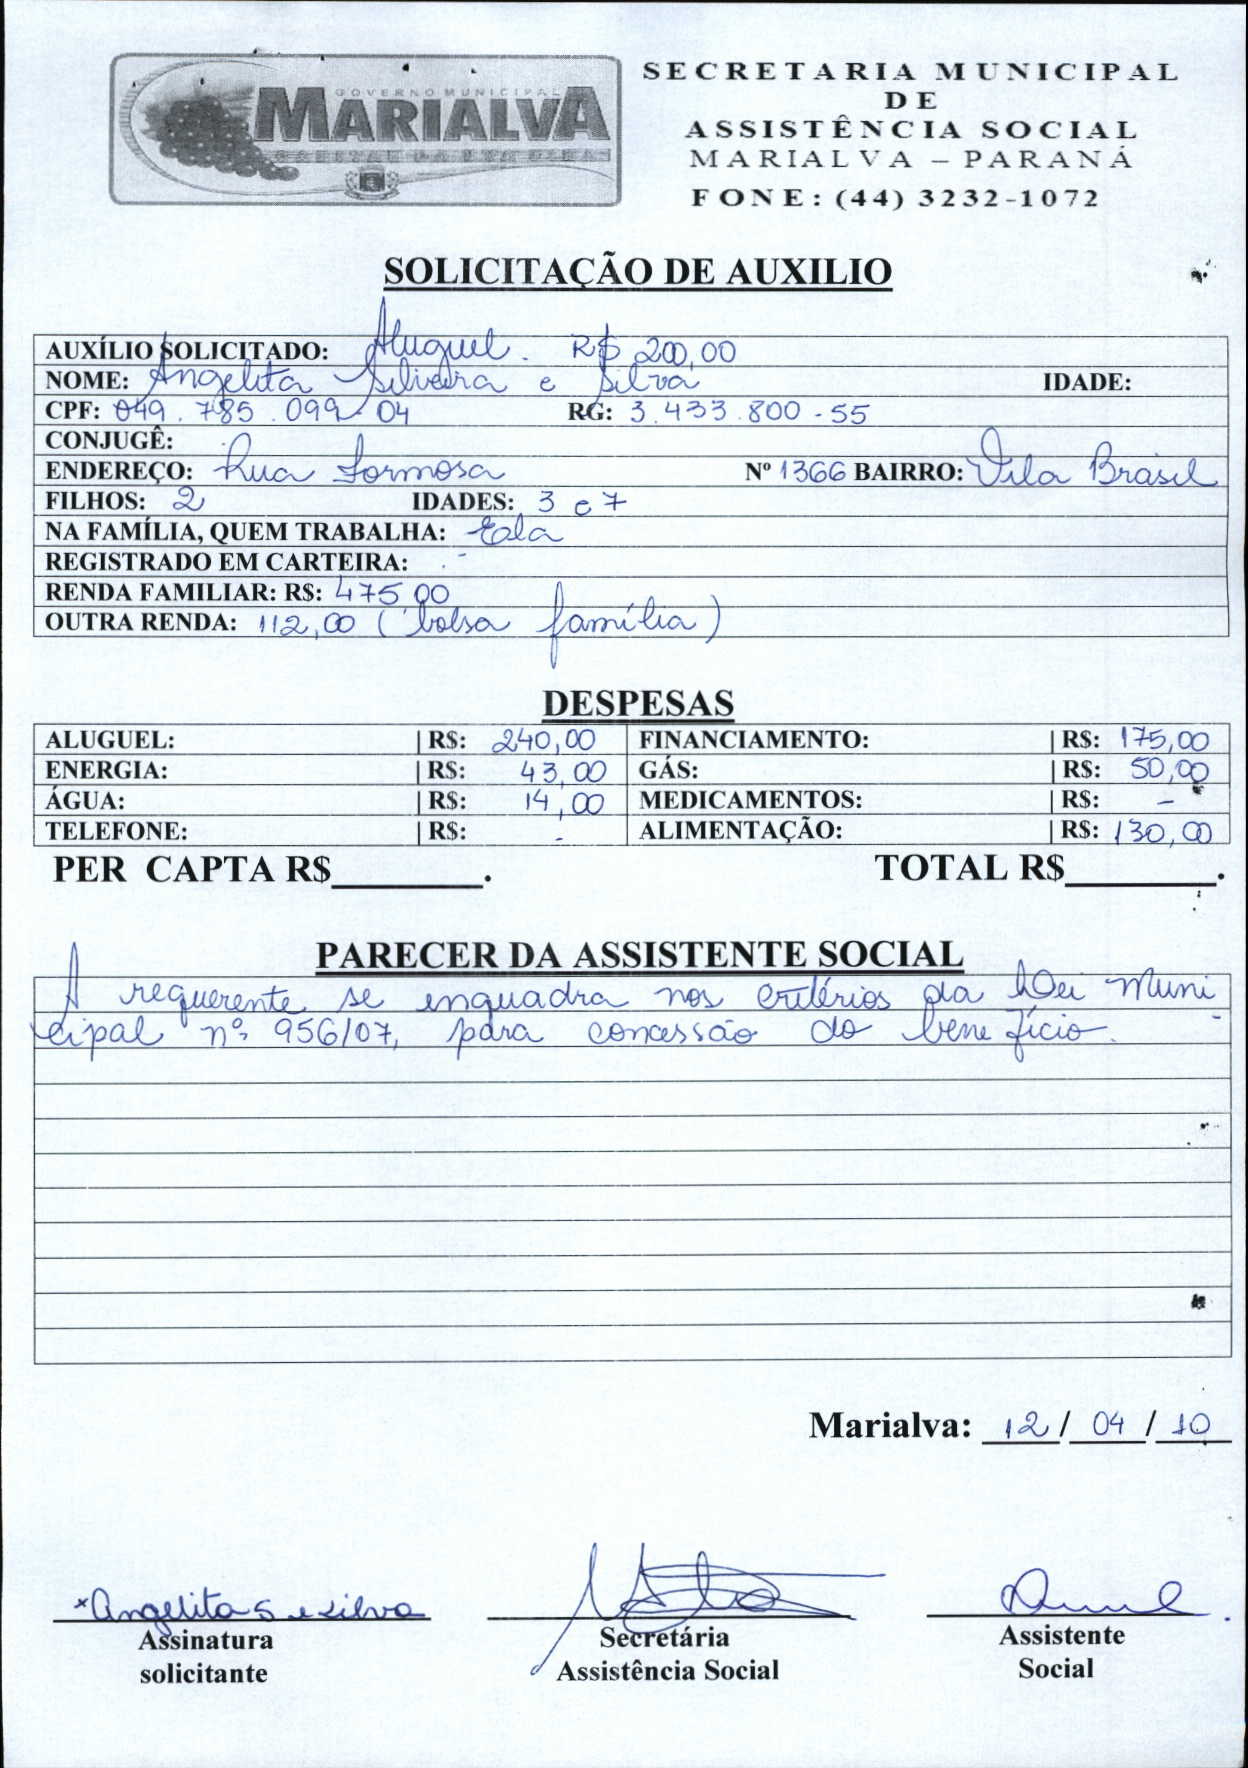 GOVERNO MUNICIPAL
MARIALVA
SECRETARIA MUNICIPAL
DE
ASSISTÊNCIA SOCIAL
MARIALVA – PARANÁ
FONE: (44) 3232-1072
SOLICITAÇÃO DE AUXILIO
AUXÍLIO SOLICITADO: Aluguel. R$ 200,00
NOME: Angelita Silveira e Silva IDADE:
CPF: 049.785.099-04 RG: 3.433.800-55
CONJUGÊ:
ENDEREÇO: Rua Formosa Nº 1366 BAIRRO: Vila Brasil
FILHOS: 2 IDADES: 3 e 7
NA FAMÍLIA, QUEM TRABALHA: Ela
REGISTRADO EM CARTEIRA: -
RENDA FAMILIAR: R$: 475,00
OUTRA RENDA: 112,00 (bolsa família)
DESPESAS
ALUGUEL: | R$: 240,00 FINANCIAMENTO: | R$: 175,00
ENERGIA: | R$: 43,00 GÁS: | R$: 50,00
ÁGUA: | R$: 14,00 MEDICAMENTOS: | R$: -
TELEFONE: | R$: - ALIMENTAÇÃO: | R$: 130,00
PER CAPTA R$________. TOTAL R$________.
PARECER DA ASSISTENTE SOCIAL
A requerente se enquadra nos critérios da Lei Muni-
cipal nº 956/07, para concessão do benefício.
Marialva: 12/04/10
*Angelita S e silva
Assinatura Secretária Assistente
solicitante Assistência Social Social